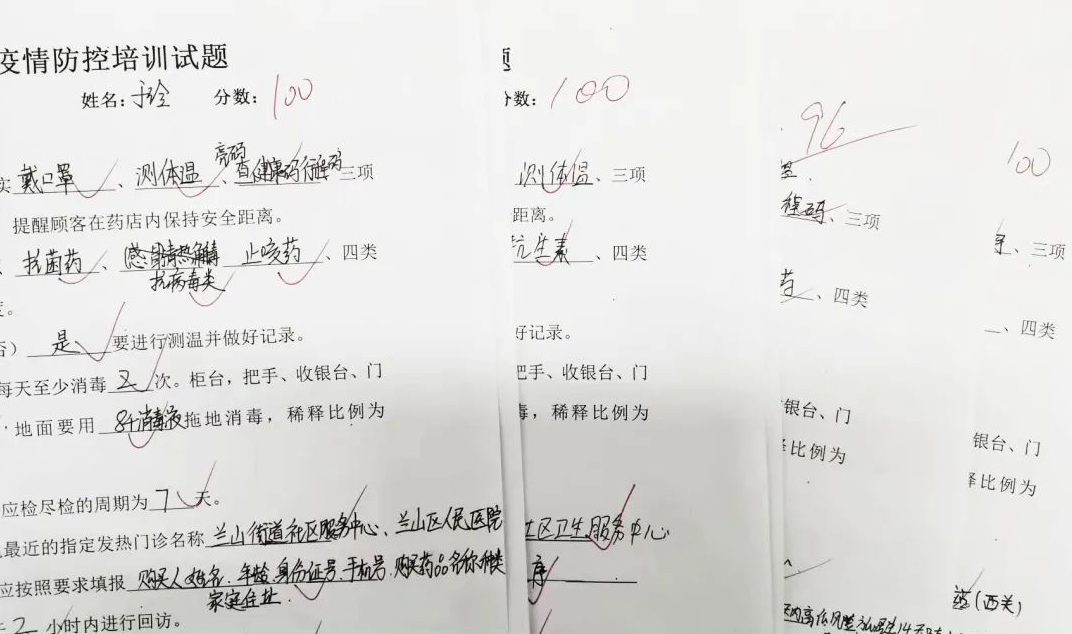 疫情防控培训试题
姓名: 分数: 100
戴口罩、测体温、亮码 查健康码行程码 三项
提醒顾客在药店内保持安全距离。
抗菌药、感冒清热解毒 止咳药、四类
抗病毒类
是 要进行测温并做好记录。
每天至少消毒 2 次。柜台，把手、收银台、门
地面要用 84消毒液拖地消毒，稀释比例为
应检尽检的周期为 7 天。
最近的指定发热门诊名称 兰山街道社区服务中心、兰山区人民医院
应按照要求填报 购买人姓名、年龄、身份证号、手机号、购买药品名称种类
家庭住址
2 小时内进行回访。
分数: 100
测体温、三项
距离。
抗生素、四类
好记录。
把手、收银台、门
毒，稀释比例为
社区卫生服务中心
96
程码、三项
药、四类
银台、门
比例为
100
、三项
、四类
银台、门
释比例为
(西关)